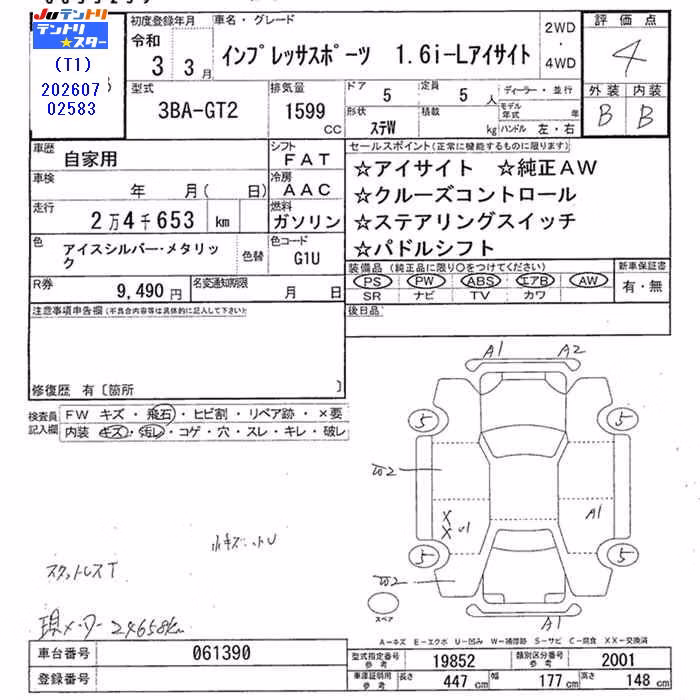 Juテントリ
テントリ★スター
(T1)
202607
02583
初度登録年月
令和
3 3月
車名・グレード
インプレッサスポーツ 1.6i-Lアイサイト
2WD
・
4WD
評価点
4
外装 内装
B B
型式
3BA-GT2
排気量
1599
cc
ドア
5
定員
5人
形状
ステW
積載
kg
ディーラー・並行
モデル年式 年
ハンドル 左・右
車歴
自家用
シフト
FAT
車検
年 月( 日)
冷房
AAC
走行
2万4千653 km
燃料
ガソリン
色
アイスシルバー・メタリック
色替
色コード
G1U
R券
9,490円
名変通知期限
月 日
セールスポイント(正常に機能するものに限ります)
☆アイサイト ☆純正AW
☆クルーズコントロール
☆ステアリングスイッチ
☆パドルシフト
装備品 (純正品に限り〇をつけてください)
PS PW ABS エアB AW
SR ナビ TV カワ
新車保証書
有・無
後日品
注意事項申告欄(不具合内容等は具体的に記入して下さい)
修復歴 有〔箇所 〕
検査員記入欄
FW キズ・飛石・ヒビ割・リペア跡・×要
内装 キズ・汚レ・コゲ・穴・スレ・キレ・破レ
A1 A2
5 5
W2
XX U1
A1
5 5
W2
A1
スペア
小キズ
スタットレスT
現メーター24658km
A-キズ E-エクボ U-凹み W-補修跡 S-サビ C-腐食 XX-交換済
車台番号 061390
登録番号
型式指定番号 参考 19852
類別区分番号 参考 2001
車庫証明用 参考 長さ 447cm 幅 177cm 高さ 148cm